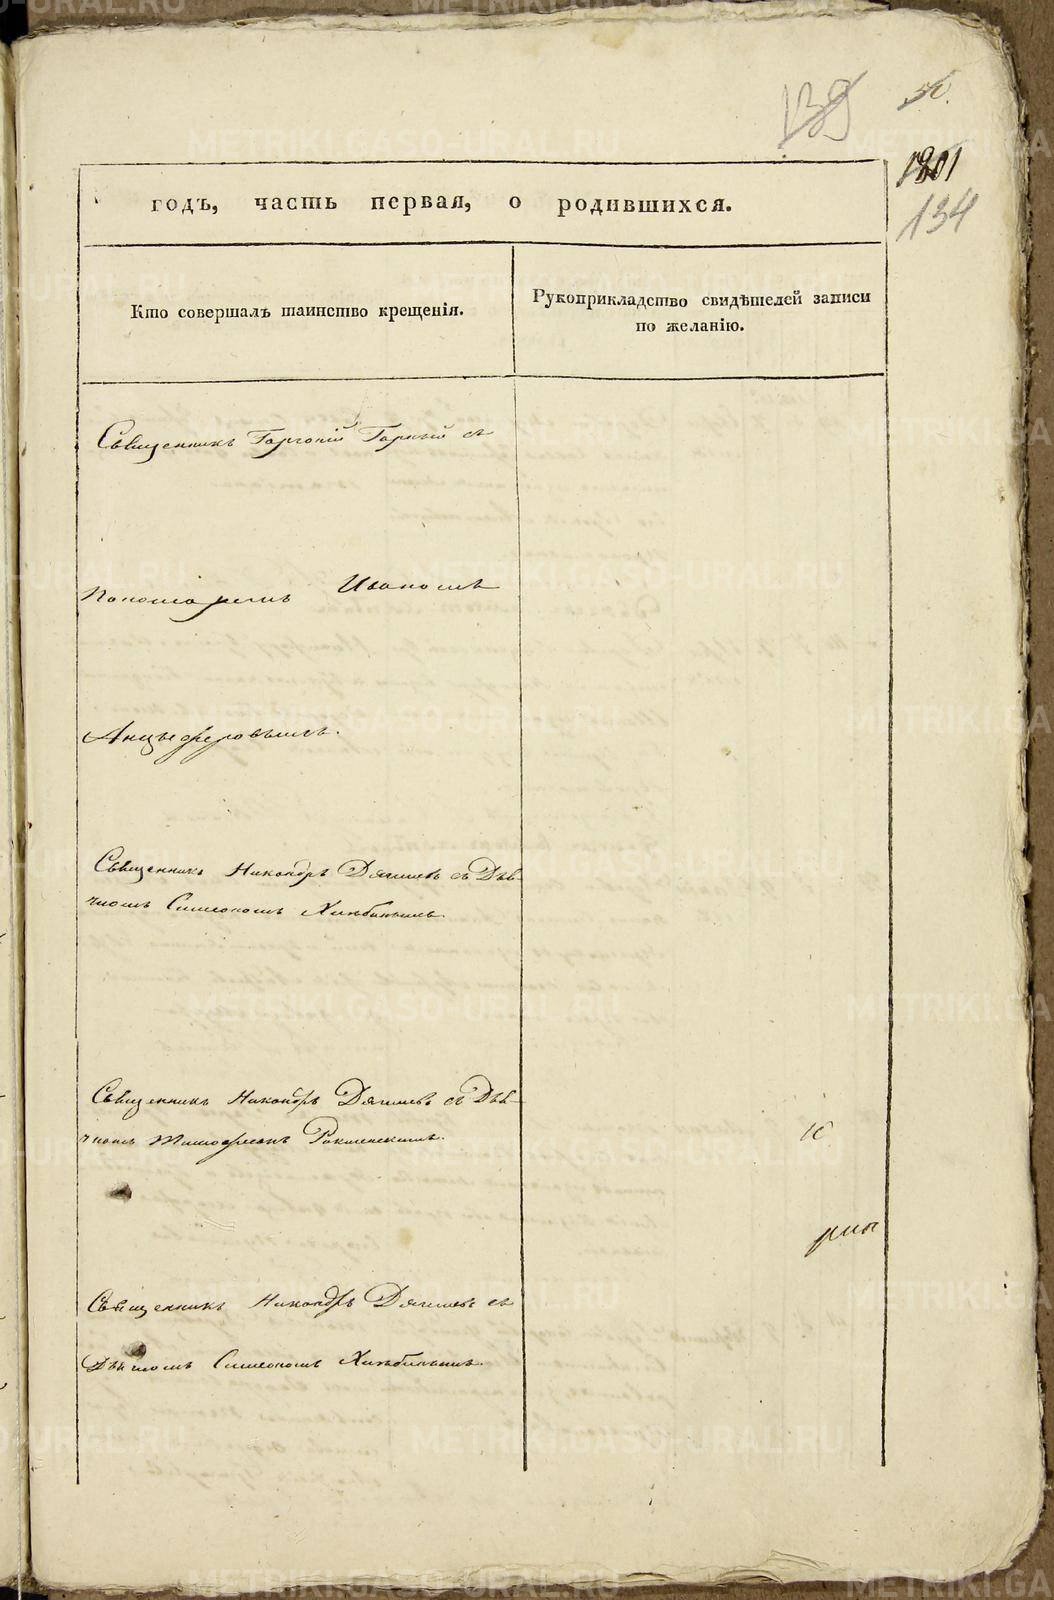 139
134
годъ, часть первая, о родившихся.
Кто совершалъ таинство крещенія.
Рукоприкладство свидѣтелей записи
по желанію.
Священникъ Горгоній Горный съ
пономаремъ Иваномъ
Анцыферовымъ.
Священникъ Никандръ Дягилевъ съ Дья-
чкомъ Симеономъ Хлыбинымъ
Священникъ Никандръ Дягилевъ съ Дья-
чкомъ Тимофеемъ
Священникъ Никандръ Дягилевъ съ
Дьячкомъ Симеономъ Хлыбинымъ
METRIKI.GASO-URAL.RU